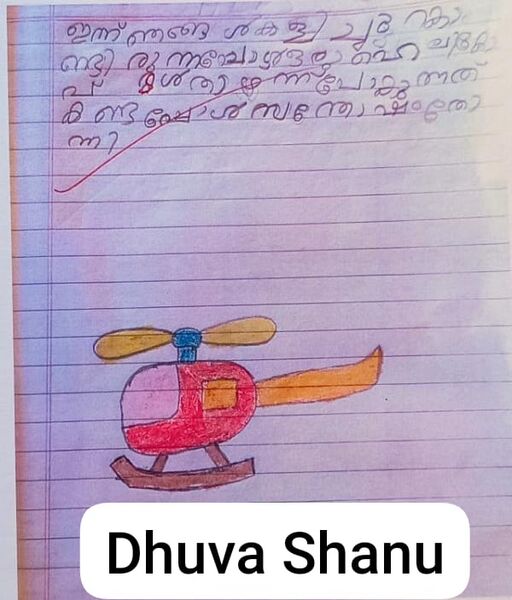 ഇന്ന് ഞങ്ങ ൾകളി ച്ചു കൊ
ണ്ടി രു ന്നപ്പോൾ ഒരു ഹെ ലികോ
പ് ൾതാ ഴ്ന്ന് പോകുന്നത്
ക ണ്ട പ്പോൾ സന്തോ ഷം തോ
ന്നി
Dhuva Shanu